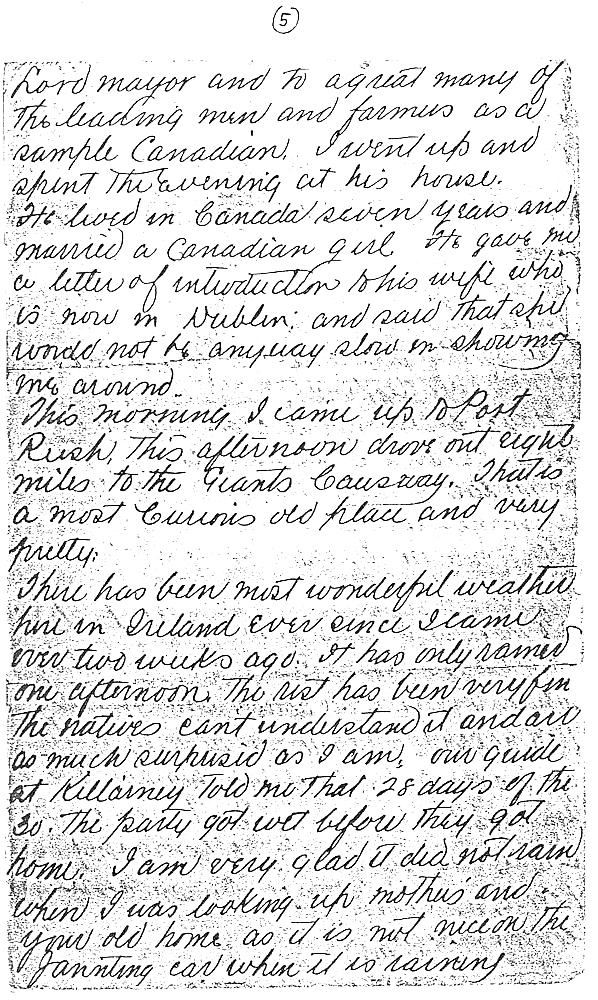 5
Lord mayor and to a great many of
the leading men and farmers as a
sample Canadian. I went up and
spent the evening at his house.
He lived in Canada seven years and
married a Canadian girl He gave me
a letter of introduction to his wife who
is now in Dublin; and said that she
would not be anyway slow in showing
me around.
This morning I came up to Port
Rush, this afternoon drove out eight
miles to the Giants Causway. That is
a most Curious old place and very
pretty.
There has been most wonderful weather
here in Ireland ever since I came
over two weeks ago. It has only rained
one afternoon. The rest has been very fin
The natives cant understand it and are
as much surprised as I am, our guide
at Killarney told me that 28 days of the
30. The party got wet before they got
home. I am very glad it did not rain
when I was looking up mothers and
your old home as it is not nice on the
Jannting car when it is raining